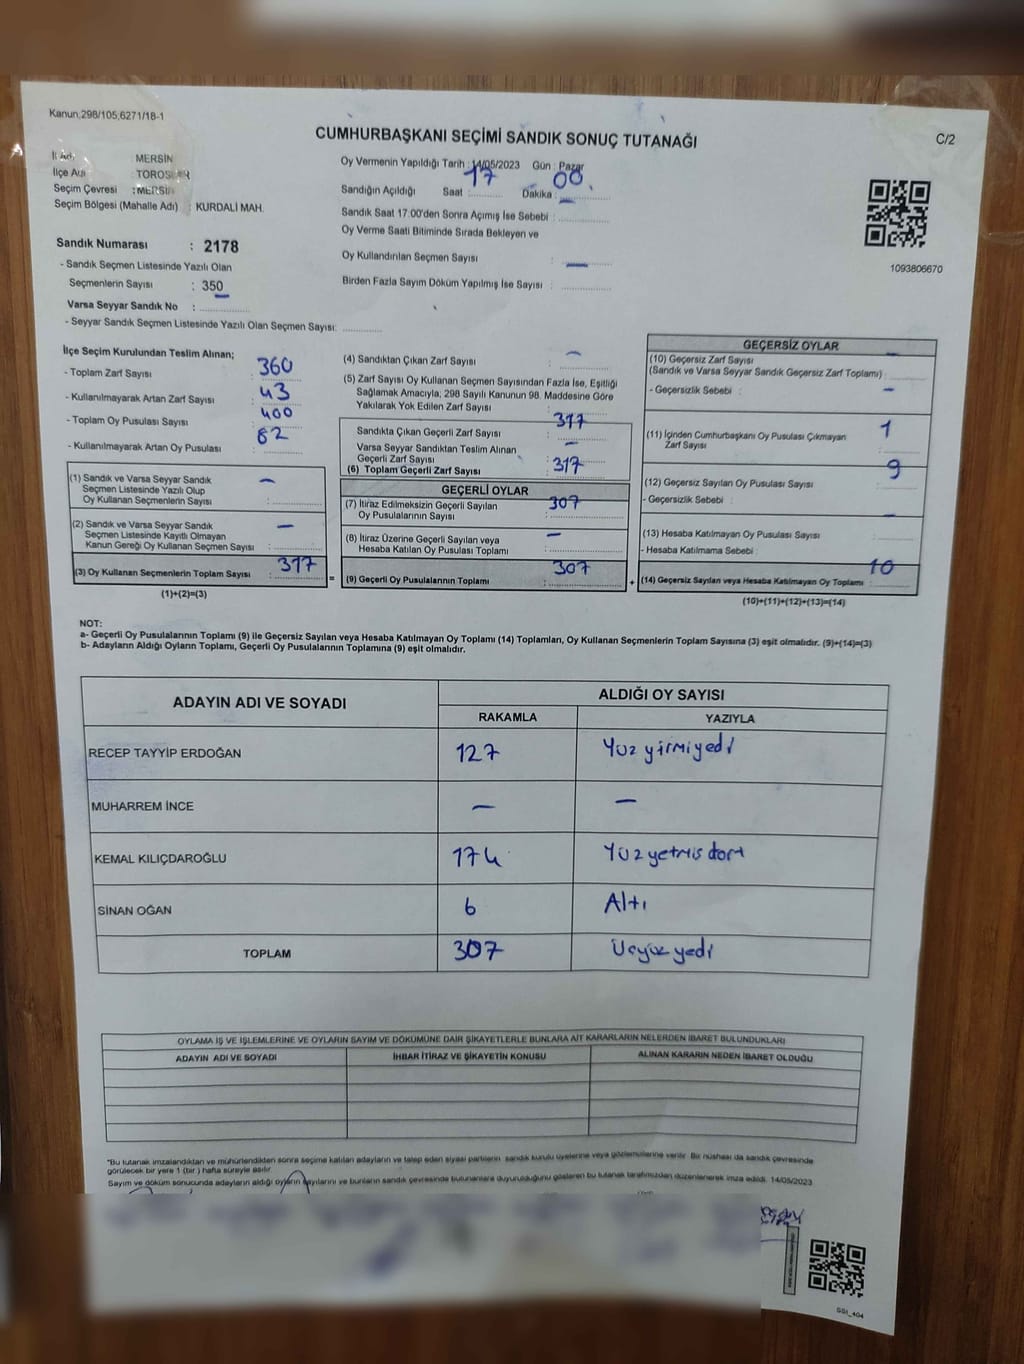 Kanun;298/105,6271/18-1
C/2
CUMHURBAŞKANI SEÇİMİ SANDIK SONUÇ TUTANAĞI
İl Adı MERSİN
İlçe Adı TOROSLAR
Seçim Çevresi : MERSİN
Seçim Bölgesi (Mahalle Adı) : KURDALİ MAH.
Sandık Numarası : 2178
- Sandık Seçmen Listesinde Yazılı Olan
Seçmenlerin Sayısı : 350
Varsa Seyyar Sandık No :
- Seyyar Sandık Seçmen Listesinde Yazılı Olan Seçmen Sayısı:
Oy Vermenin Yapıldığı Tarih : 14/05/2023 Gün : Pazar
Sandığın Açıldığı Saat : 17 Dakika : 00
Sandık Saat 17.00'den Sonra Açımış İse Sebebi :
Oy Verme Saati Bitiminde Sırada Bekleyen ve
Oy Kullandırılan Seçmen Sayısı : —
Birden Fazla Sayım Döküm Yapılmış İse Sayısı :
1093806670
İlçe Seçim Kurulundan Teslim Alınan;
- Toplam Zarf Sayısı : 360
- Kullanılmayarak Artan Zarf Sayısı : 43
- Toplam Oy Pusulası Sayısı : 400
- Kullanılmayarak Artan Oy Pusulası : 82
(1) Sandık ve Varsa Seyyar Sandık
Seçmen Listesinde Yazılı Olup
Oy Kullanan Seçmenlerin Sayısı : —
(2) Sandık ve Varsa Seyyar Sandık
Seçmen Listesinde Kayıtlı Olmayan
Kanun Gereği Oy Kullanan Seçmen Sayısı : —
(3) Oy Kullanan Seçmenlerin Toplam Sayısı : 317
(1)+(2)=(3)
=
(4) Sandıktan Çıkan Zarf Sayısı : —
(5) Zarf Sayısı Oy Kullanan Seçmen Sayısından Fazla İse, Eşitliği
Sağlamak Amacıyla, 298 Sayılı Kanunun 98. Maddesine Göre
Yakılarak Yok Edilen Zarf Sayısı :
Sandıkta Çıkan Geçerli Zarf Sayısı : 317
Varsa Seyyar Sandıktan Teslim Alınan
Geçerli Zarf Sayısı : —
(6) Toplam Geçerli Zarf Sayısı : 317
GEÇERLİ OYLAR
(7) İtiraz Edilmeksizin Geçerli Sayılan
Oy Pusulalarının Sayısı : 307
(8) İtiraz Üzerine Geçerli Sayılan veya
Hesaba Katılan Oy Pusulası Toplamı : —
(9) Geçerli Oy Pusulalarının Toplamı : 307
+
GEÇERSİZ OYLAR
(10) Geçersiz Zarf Sayısı —
(Sandık ve Varsa Seyyar Sandık Geçersiz Zarf Toplamı) :
- Geçersizlik Sebebi : —
(11) İçinden Cumhurbaşkanı Oy Pusulası Çıkmayan
Zarf Sayısı : 1
(12) Geçersiz Sayılan Oy Pusulası Sayısı : 9
- Geçersizlik Sebebi :
(13) Hesaba Katılmayan Oy Pusulası Sayısı : —
- Hesaba Katılmama Sebebi :
(14) Geçersiz Sayılan veya Hesaba Katılmayan Oy Toplamı : 10
(10)+(11)+(12)+(13)=(14)
NOT:
a- Geçerli Oy Pusulalarının Toplamı (9) ile Geçersiz Sayılan veya Hesaba Katılmayan Oy Toplamı (14) Toplamları, Oy Kullanan Seçmenlerin Toplam Sayısına (3) eşit olmalıdır. (9)+(14)=(3)
b- Adayların Aldığı Oyların Toplamı, Geçerli Oy Pusulalarının Toplamına (9) eşit olmalıdır.
ADAYIN ADI VE SOYADI ALDIĞI OY SAYISI
RAKAMLA YAZIYLA
RECEP TAYYİP ERDOĞAN 127 Yüz yirmi yedi
MUHARREM İNCE — —
KEMAL KILIÇDAROĞLU 174 Yüz yetmis dört
SİNAN OĞAN 6 Altı
TOPLAM 307 Üçyüz yedi
OYLAMA İŞ VE İŞLEMLERİNE VE OYLARIN SAYIM VE DÖKÜMÜNE DAİR ŞİKAYETLERLE BUNLARA AİT KARARLARIN NELERDEN İBARET BULUNDUKLARI
ADAYIN ADI VE SOYADI İHBAR İTİRAZ VE ŞİKAYETİN KONUSU ALINAN KARARIN NEDEN İBARET OLDUĞU
"Bu tutanak imzalandıktan ve mühürlendikten sonra seçime katılan adayların ve talep eden siyasi partilerin sandık kurulu üyelerine veya gözlemcilerine verilir. Bir nüshası da sandık çevresinde
görülecek bir yere 1 (bir) hafta süreyle asılır.
Sayım ve döküm sonucunda adayların aldığı oyların sayılarını ve bunların sandık çevresinde bulunanlara duyurulduğunu gösteren bu tutanak tarafımızdan düzenlenerek imza edildi. 14/05/2023
GSI_404